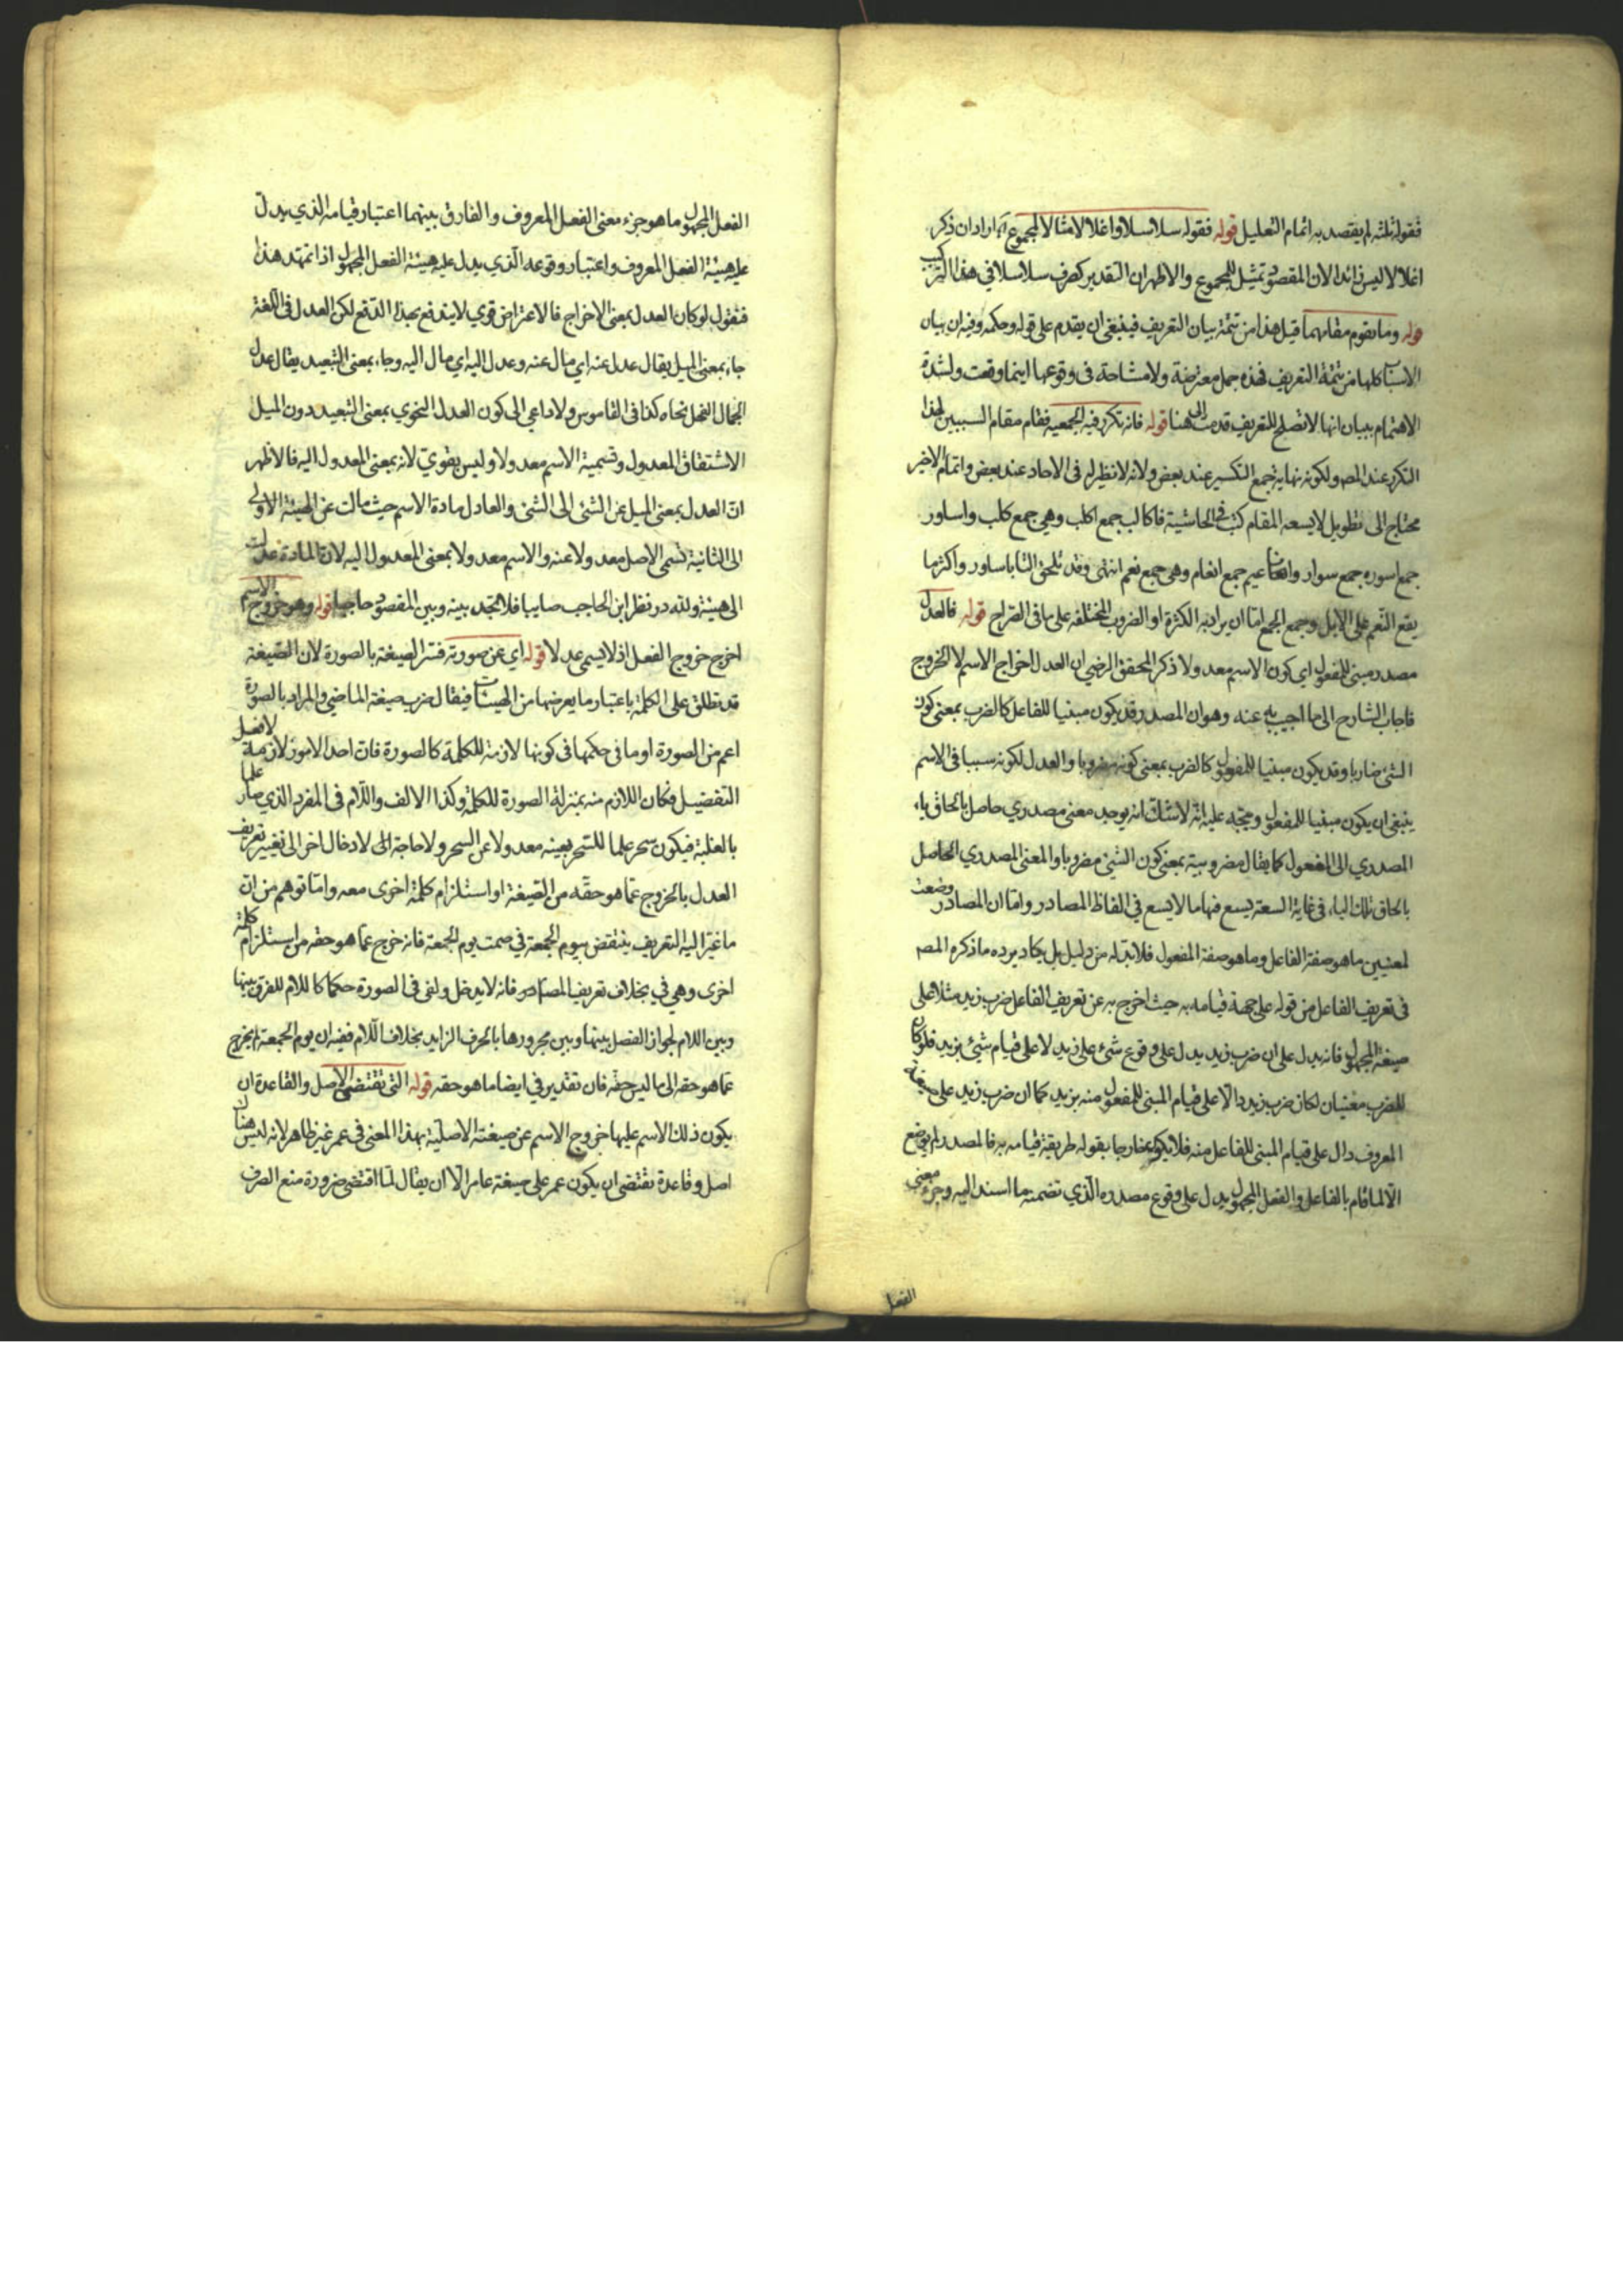 فقوله ثلثه لم يقصد به اتمام التعليل قوله فقوله سلاسلا واغلالا مثالا لمجموع اه اراد ان ذكر
اغلالا ليس زائدا لان المقصود تمثيل المجموع والاظهر ان التقدير كصرف سلاسلا في هذا التركيب
قوله وما يقوم مقامهما قيل هذا من تتمة بيان التعريف فينبغي ان يقدم على قوله وحكمه وفيه ان بيان
الاسباب كلها من تتمة التعريف فهذه جمل معترضة ولا مشاحة في وقوعها اينما وقعت ولشدة
الاهتمام ببيان انها لا تصلح للتعريف قدمت الى هنا قوله فانه تكرر فيه الجمعية فقام مقام السببين لهذا
التكرر عند المصـ ولكونه نهاية جمع التكسير عند بعض ولانه لا نظير له في الاحاد عند بعض واتمام الاخير
محتاج الى تطويل لا يسعه المقام كتب في الحاشية فاكالب جمع اكلب وهي جمع كلب واساور
جمع اسوره جمع سوار واناعيم جمع انعام وهي جمع نعم انتهى وقد تلحق التا باساور واكثر ما
يقع النعم على الابل وجمع الجمع اما ان يراد به الكثرة او الضروب المختلفه على ما في الصراح قوله فالعدل
مصدر مبني للمفعول اي كون الاسم معدولا ذكر المحقق الرضي ان العدل اخراج الاسم لا الخروج
فاجاب الشارح الى ما اجيب به عنه وهو ان المصدر قد يكون مبنيا للفاعل كالضرب بمعنى كون
الشئ ضاربا وقد يكون مبنيا للمفعول كالضرب بمعنى كونه مضروبا والعدل لكونه سببا في الاسم
ينبغي ان يكون مبنيا للمفعول ويتجه عليه انه لا شك انه يوجد معنى مصدري حاصل بالحاق ياء
المصدري الى المفعول كما يقال مضروبية بمعنى كون الشئ مضروبا والمعنى المصدري الحاصل
بالحاق تلك الياء في غاية السعة يسع فيها ما لا يسع في الفاظ المصادر واما ان المصادر وضعت
لمعنيين ما هو صفة الفاعل وما هو صفة المفعول فلا بد له من دليل بل يكاد يرده ما ذكره المصـ
في تعريف الفاعل من قوله على جهة قيامه به حيث اخرج به عن تعريف الفاعل ضرب زيد مثلا على
صيغة المجهول فانه يدل على ان ضرب زيد يدل على وقوع شئ على زيد لا على قيام شئ بزيد فلو كان
للضرب معنيان لكان ضرب زيد دالا على قيام المبني للمفعول منه بزيد كما ان ضرب زيد على صيغة
المعروف دال على قيام المبني للفاعل منه فلا يكون خارجا بقوله طريقة قيامه به فالمصدر لم يوضع
الا لما قام بالفاعل والفعل المجهول يدل على وقوع مصدره الذي تضمنه ما اسند اليه وجزء معنى
الفعل
الفعل المجهول ما هو جزء معنى الفعل المعروف والفارق بينهما اعتبار قيامه الذي يدل
عليه هيئة الفعل المعروف واعتبار وقوعه الذي يدل عليه هيئة الفعل المجهول اذا تمهد هذا
فنقول لو كان العدل بمعنى الاخراج فالاعتراض قوي لا يندفع بهذا الدفع لكن العدل في اللغة
جاء بمعنى الميل يقال عدل عنه اي مال عنه وعدل اليه اي مال اليه وجاء بمعنى التبعيد يقال عدل
الجمال الفحل نحاه كذا في القاموس ولا داعي الى كون العدل النحوي بمعنى التبعيد دون الميل
الا اشتقاق المعدول وتسمية الاسم معدولا وليس بقوي لانه بمعنى المعدول اليه فالاظهر
ان العدل بمعنى الميل عن الشئ الى الشئ والعادل مادة الاسم حيث مالت عن الهيئة الاولى
الى الثانية تسمى الاصل معدولا عنه والاسم معدولا بمعنى المعدول اليه لان المادة عدلت
الى هيئة ولله در نظر ابن الحاجب صايبا فلا تجد بينه وبين المقصود حاجبا قوله وهو خروج الاسم
اخرج خروج الفعل اذ لا يسمى عدلا قوله اي عن صورته فسر الصيغة بالصورة لان الصيغة
قد تطلق على الكلمة باعتبار ما يعرضها من الهيئات فيقال ضرب صيغة الماضي والمراد بالصورة
اعم من الصورة او ما في حكمها في كونها لازمة للكلمة كالصورة فان احد الامور لازمة لافعل
التفضيل فكان اللازم منه بمنزلة الصورة للكلمة وكذا الالف واللام في المفرد الذي صار علما
بالغلبة فيكون سحر علما للسحر بعينه معدولا عن السحر ولا حاجة الى لادخال اخر الى تغيير تعريف
العدل بالخروج عما هو حقه من الصيغة او استلزام كلمة اخرى معه واما توهم من ان
ما غير اليه التعريف ينتقض بيوم الجمعة في صمت يوم الجمعة فانه خرج عما هو حقه من استلزام كلمة
اخرى وهي في بخلاف تعريف المصادر فانه لا يدخل ولفى في الصورة حكما كاللام للفرق بينها
وبين اللام لجواز الفصل بينها وبين مجرورها بالحرف الزايد بخلاف اللام ففيه ان يوم الجمعة لم يخرج
عما هو حقه الى ما ليس حقه فان تقدير في ايضا ما هو حقه قوله التي تقتضى الاصل والقاعدة ان
يكون ذلك الاسم عليها خروج الاسم عن صيغته الاصلية بهذا المعنى في عمر غير ظاهر لانه ليس هنا
اصل وقاعدة تقتضى ان يكون عمر على صيغة عامر الا ان يقال لما اقتضى ضرورة منع الصرف